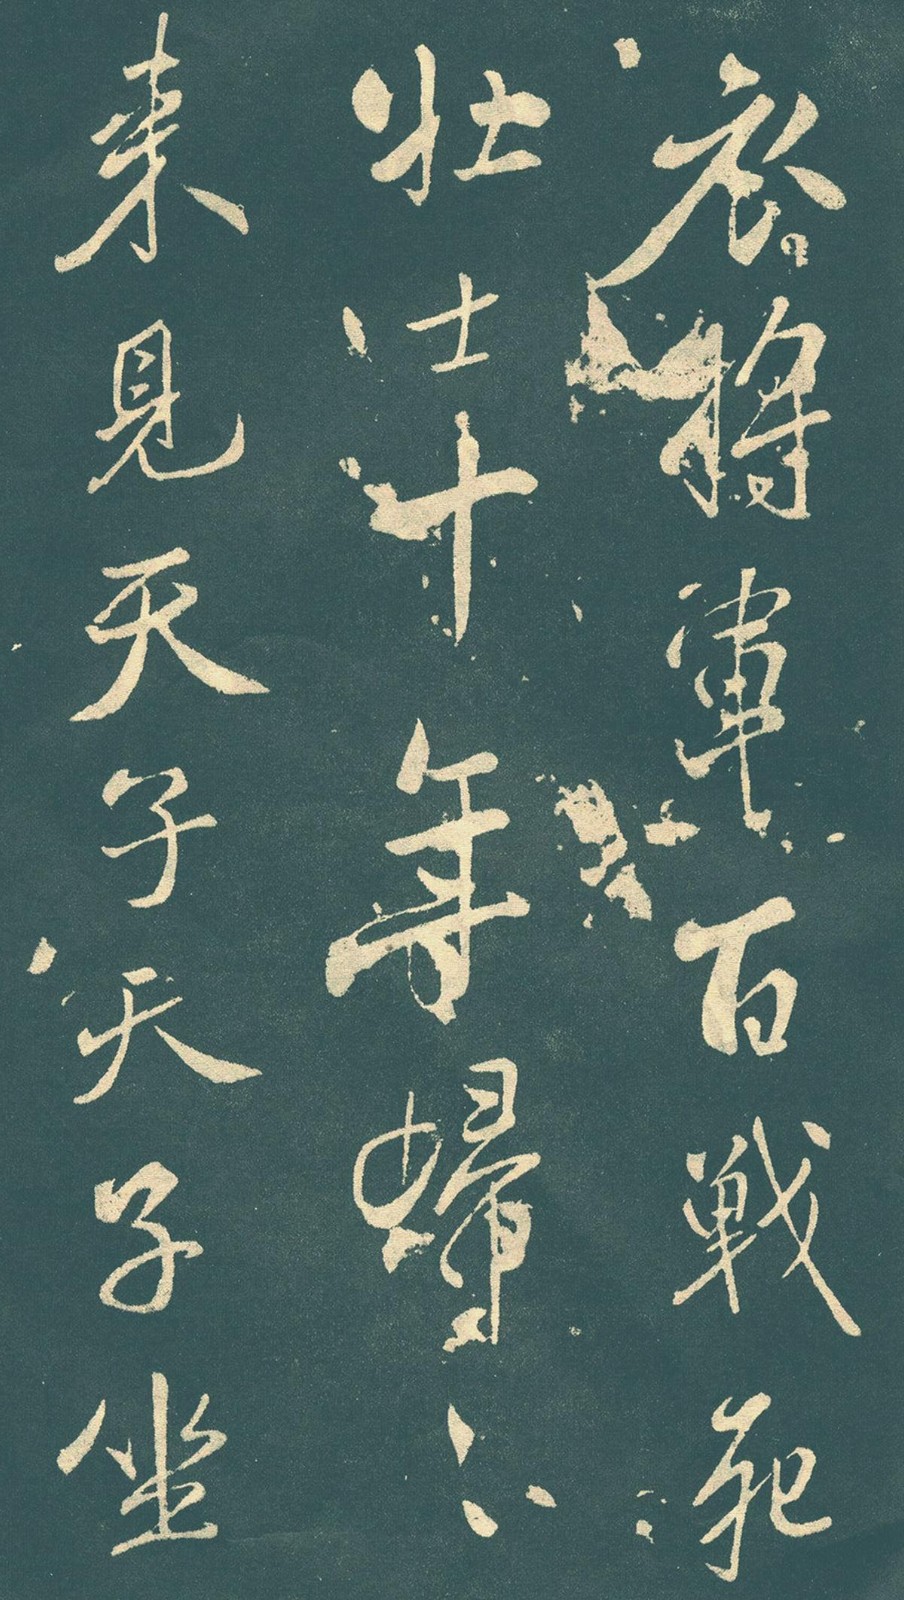 衣將軍百戰死
壯士十年歸〻
来見天子天子坐